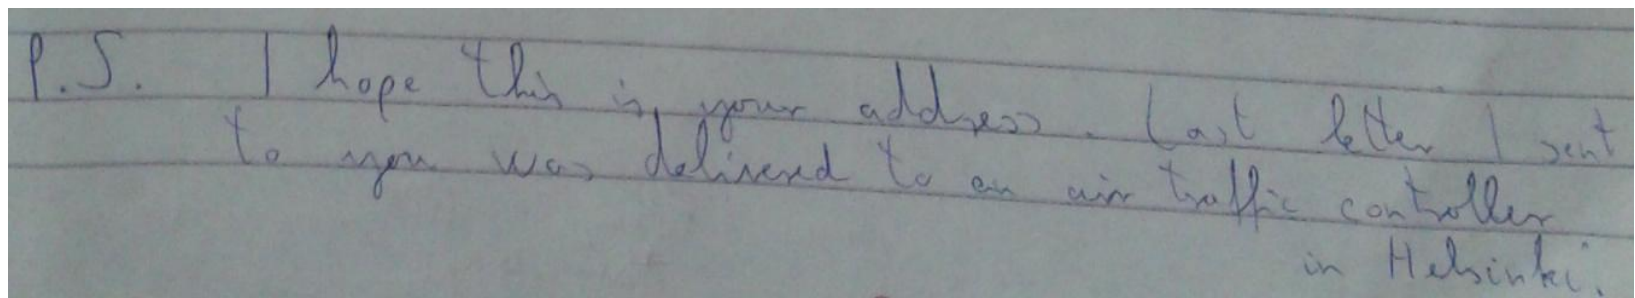 P.S. I hope this is your address. Last letter I sent
to you was delivered to an air traffic controller
in Helsinki.